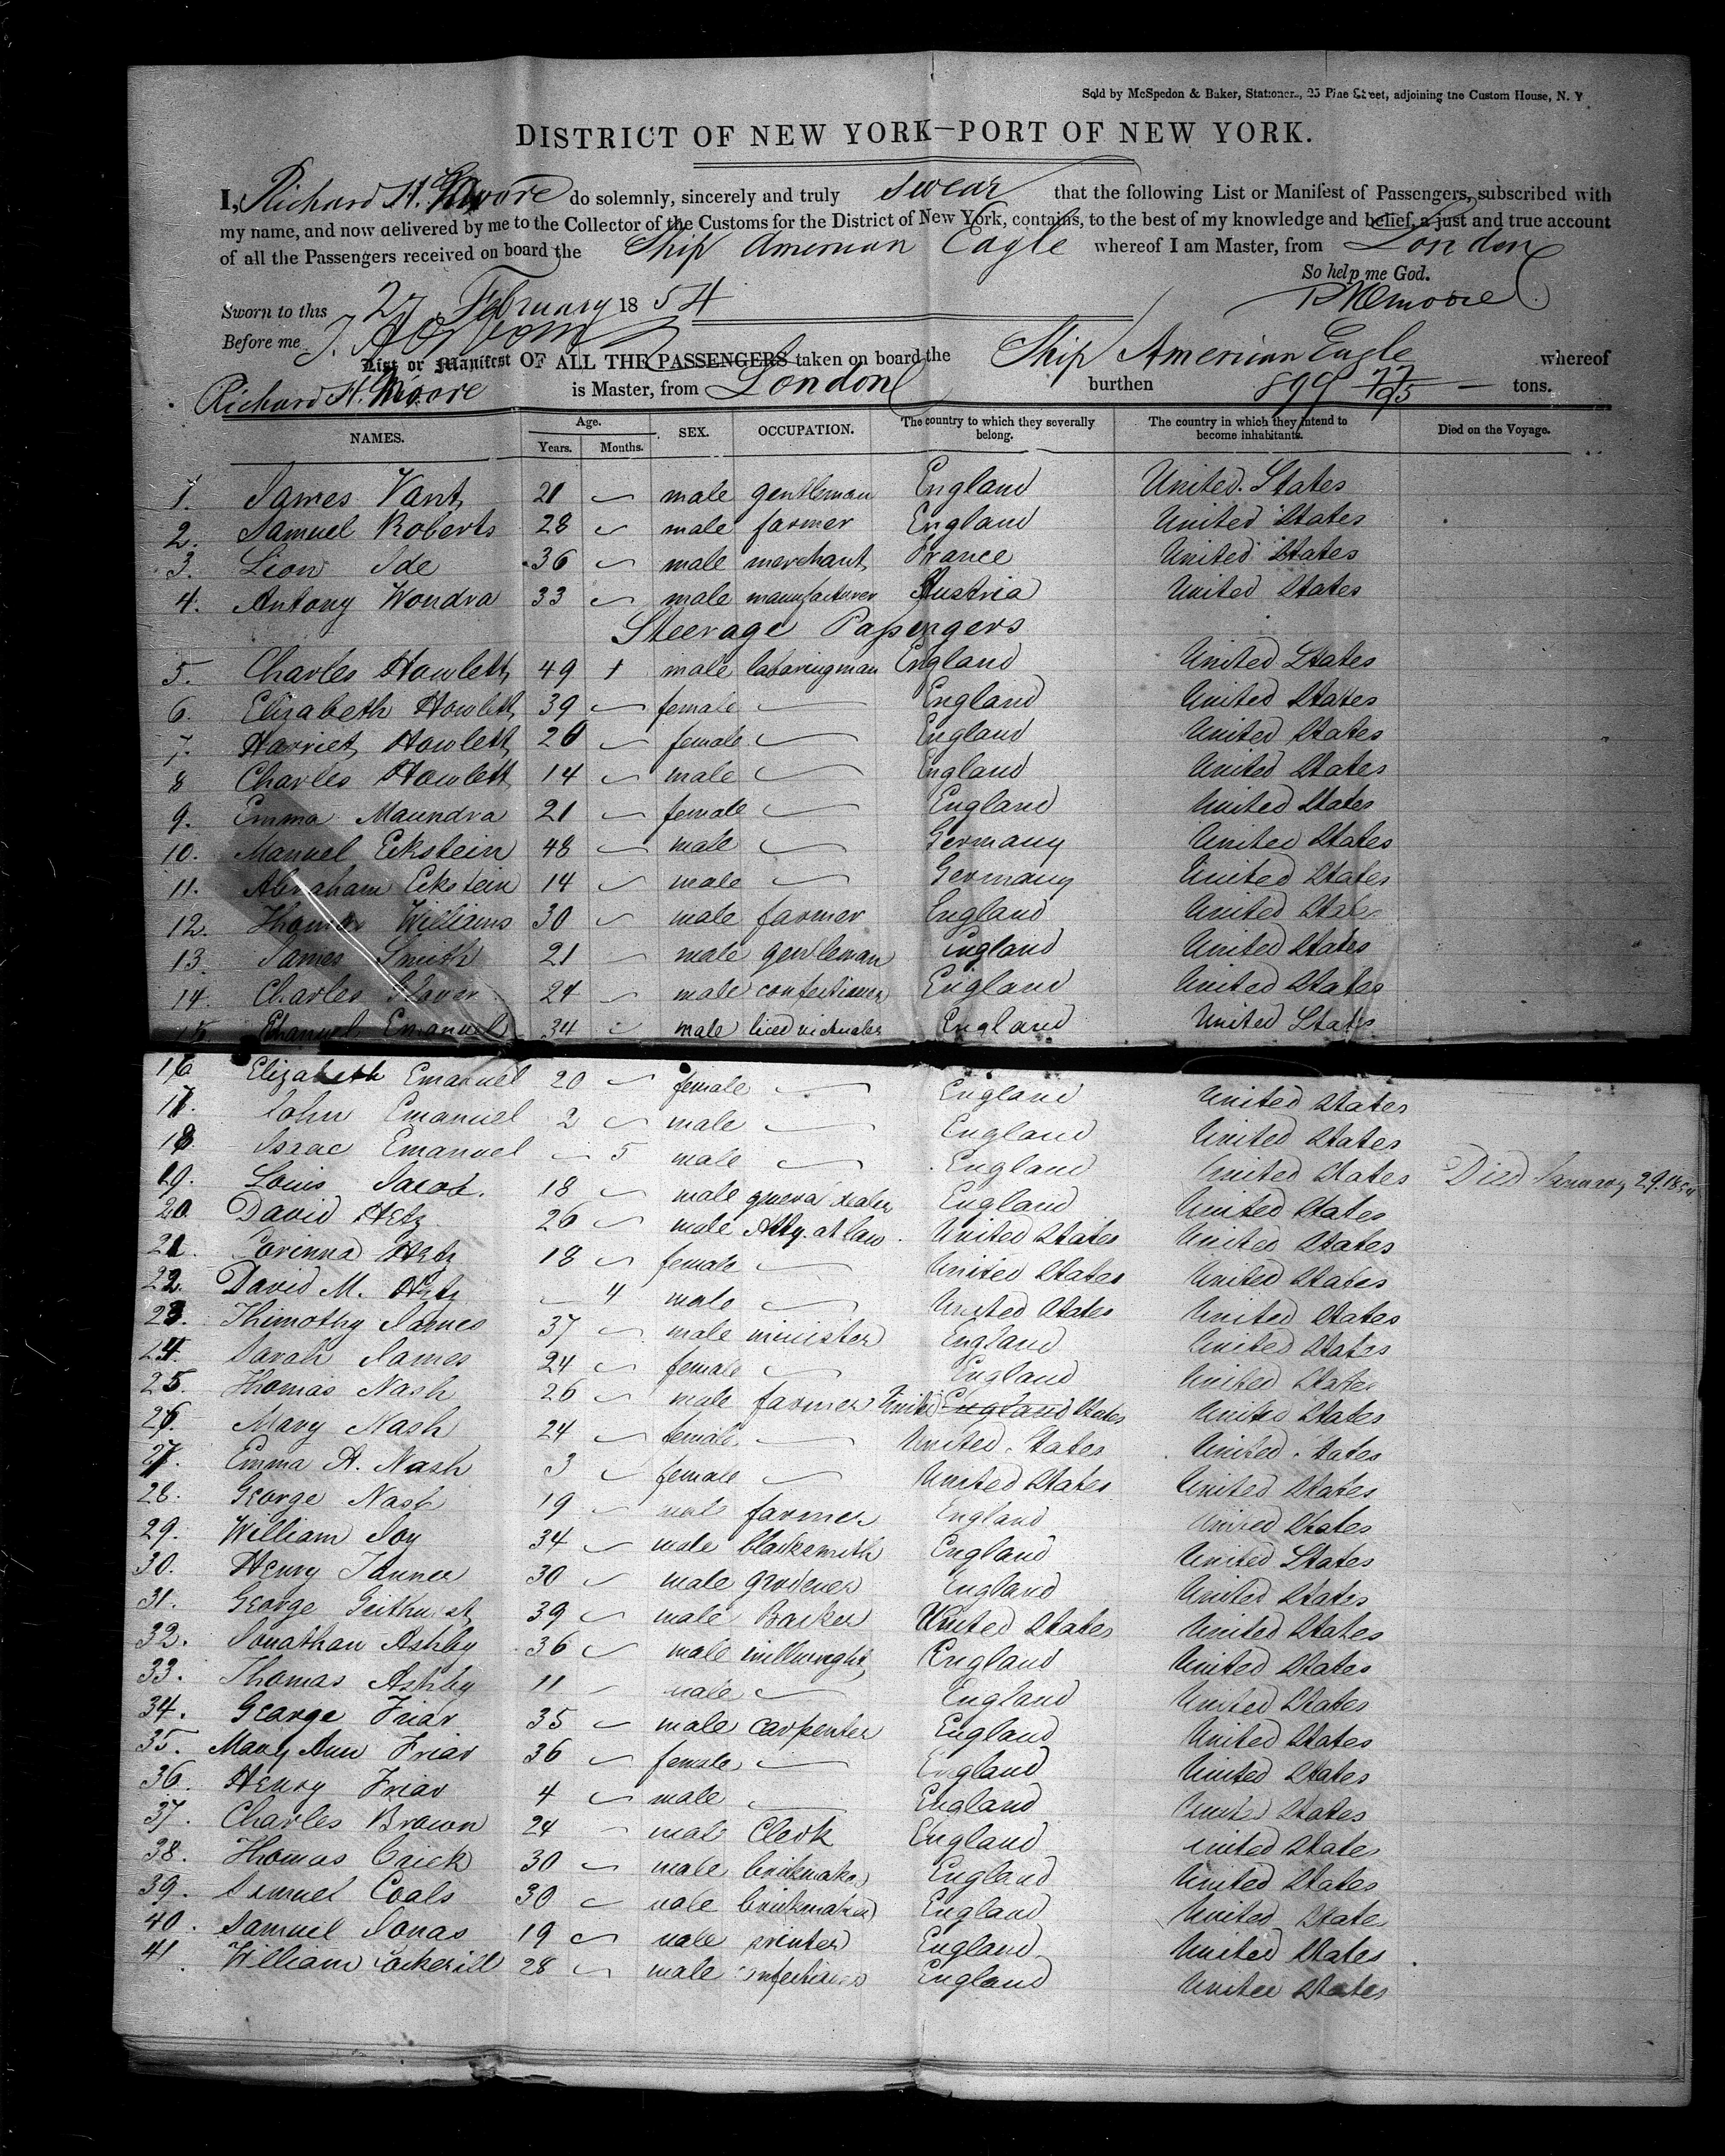 Sold by McSpedon & Baker, Stationers, 25 Pine Street, adjoining the Custom House, N. Y.
DISTRICT OF NEW YORK—PORT OF NEW YORK.
I, Richard H. Moore do solemnly, sincerely and truly swear that the following List or Manifest of Passengers, subscribed with
my name, and now delivered by me to the Collector of the Customs for the District of New York, contains, to the best of my knowledge and belief, a just and true account
of all the Passengers received on board the Ship American Eagle whereof I am Master, from London
So help me God.
Sworn to this 27 February 1854 R H Moore
Before me
List or Manifest OF ALL THE PASSENGERS taken on board the Ship American Eagle whereof
Richard H. Moore is Master, from London burthen 899 77/95 tons.
NAMES. Age. Years. Months. SEX. OCCUPATION. The country to which they severally belong. The country in which they intend to become inhabitants. Died on the Voyage.
1. James Vant 21 male gentleman England United States
2. Samuel Roberts 28 male farmer England United States
3. Lion Ide 36 male merchant France United States
4. Antony Wondra 33 male manufacturer Austria United States
Steerage Passengers
5. Charles Howlett 49 1 male laboringman England United States
6. Elizabeth Howlett 39 female England United States
7. Harriet Howlett 20 female England United States
8 Charles Howlett 14 male England United States
9. Emma Maundra 21 female England United States
10. Manuel Eckstein 48 male Germany United States
11. Abraham Eckstein 14 male Germany United States
12. Thomas Williams 30 male farmer England United States
13. James Smith 21 male gentleman England United States
14. Charles Slaver 24 male confectioner England United States
15 Emanuel 34 male England United States
16 Elizabeth Emanuel 20 female England United States
17. John Emanuel 2 male England United States
18. Isaac Emanuel 5 male England United States Died January 29. 1854
19. Louis Jacob. 18 male general dealer England United States
20. David Hetz 26 male Atty. at law United States United States
21. Corinna Hetz 18 female United States United States
22. David M. Hetz 4 male United States United States
23. Thimothy James 37 male minister England United States
24. Sarah James 24 female England United States
25. Thomas Nash 26 male farmer United England States United States
26. Mary Nash 24 female United States United States
27. Emma A. Nash 3 female United States United States
28. George Nash 19 male farmer England United States
29. William Joy 34 male blacksmith England United States
30. Henry Tanner 30 male gardener England United States
31. George 39 male Backer United States United States
32. Jonathan Ashby 36 male millwright England United States
33. Thomas Ashby 11 male England United States
34. George Friar 35 male carpenter England United States
35. Mary Ann Friar 36 female England United States
36. Henry Friar 4 male England United States
37. Charles Brown 24 male Clerk England United States
38. Thomas Crick 30 male brickmaker England United States
39. Samuel Coals 30 male brickmaker England United States
40. Samuel Jonas 19 male printer England United States
41. William Cockerill 28 male confectioner England United States